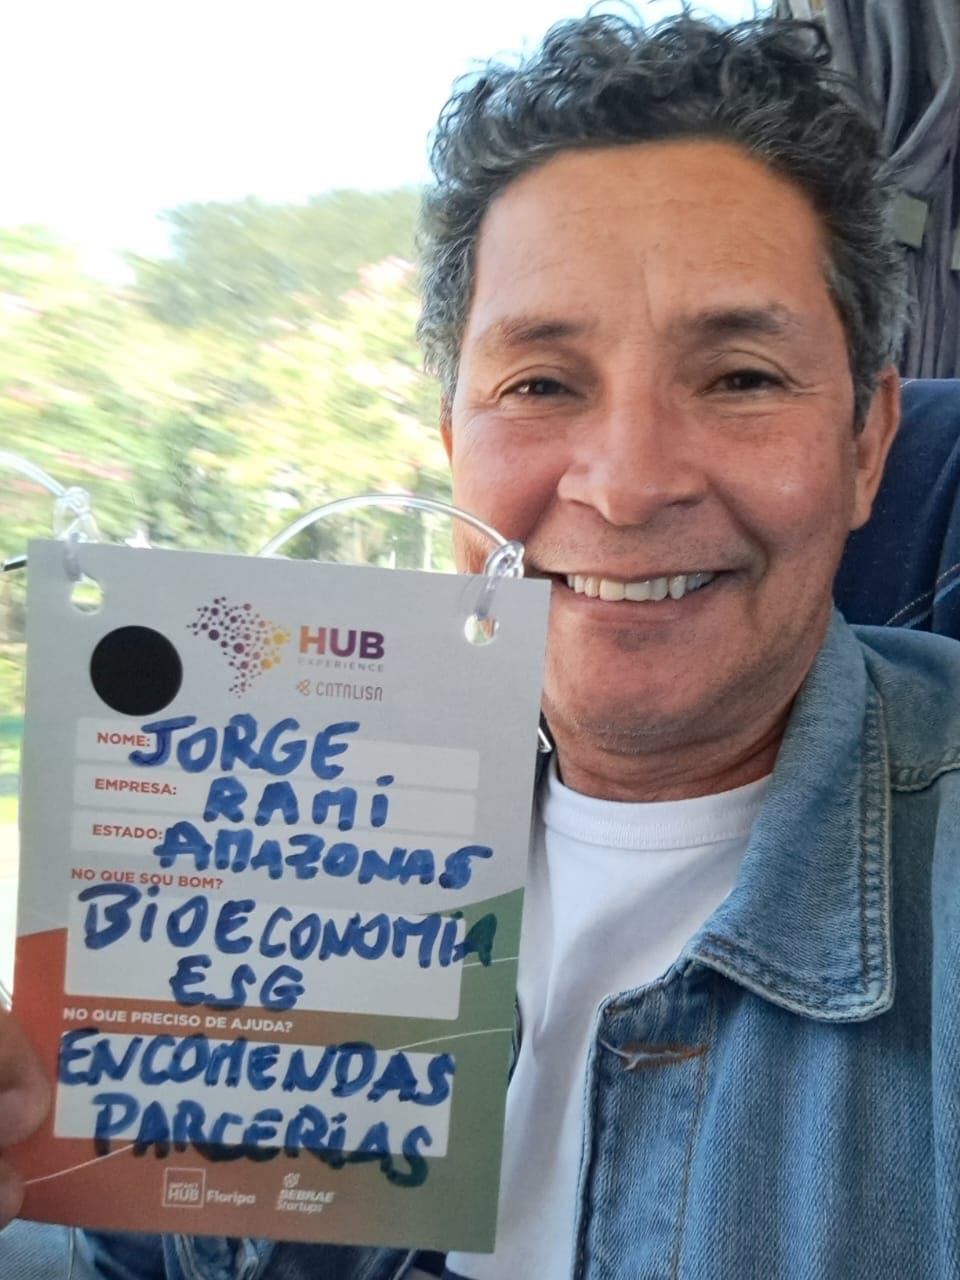 HUB
EXPERIENCE
CATALISA
NOME: JORGE
EMPRESA: RAMI
ESTADO: AMAZONAS
NO QUE SOU BOM?
BIOECONOMIA
ESG
NO QUE PRECISO DE AJUDA?
ENCOMENDAS
PARCERIAS
IMPACT HUB Floripa
SEBRAE Startups